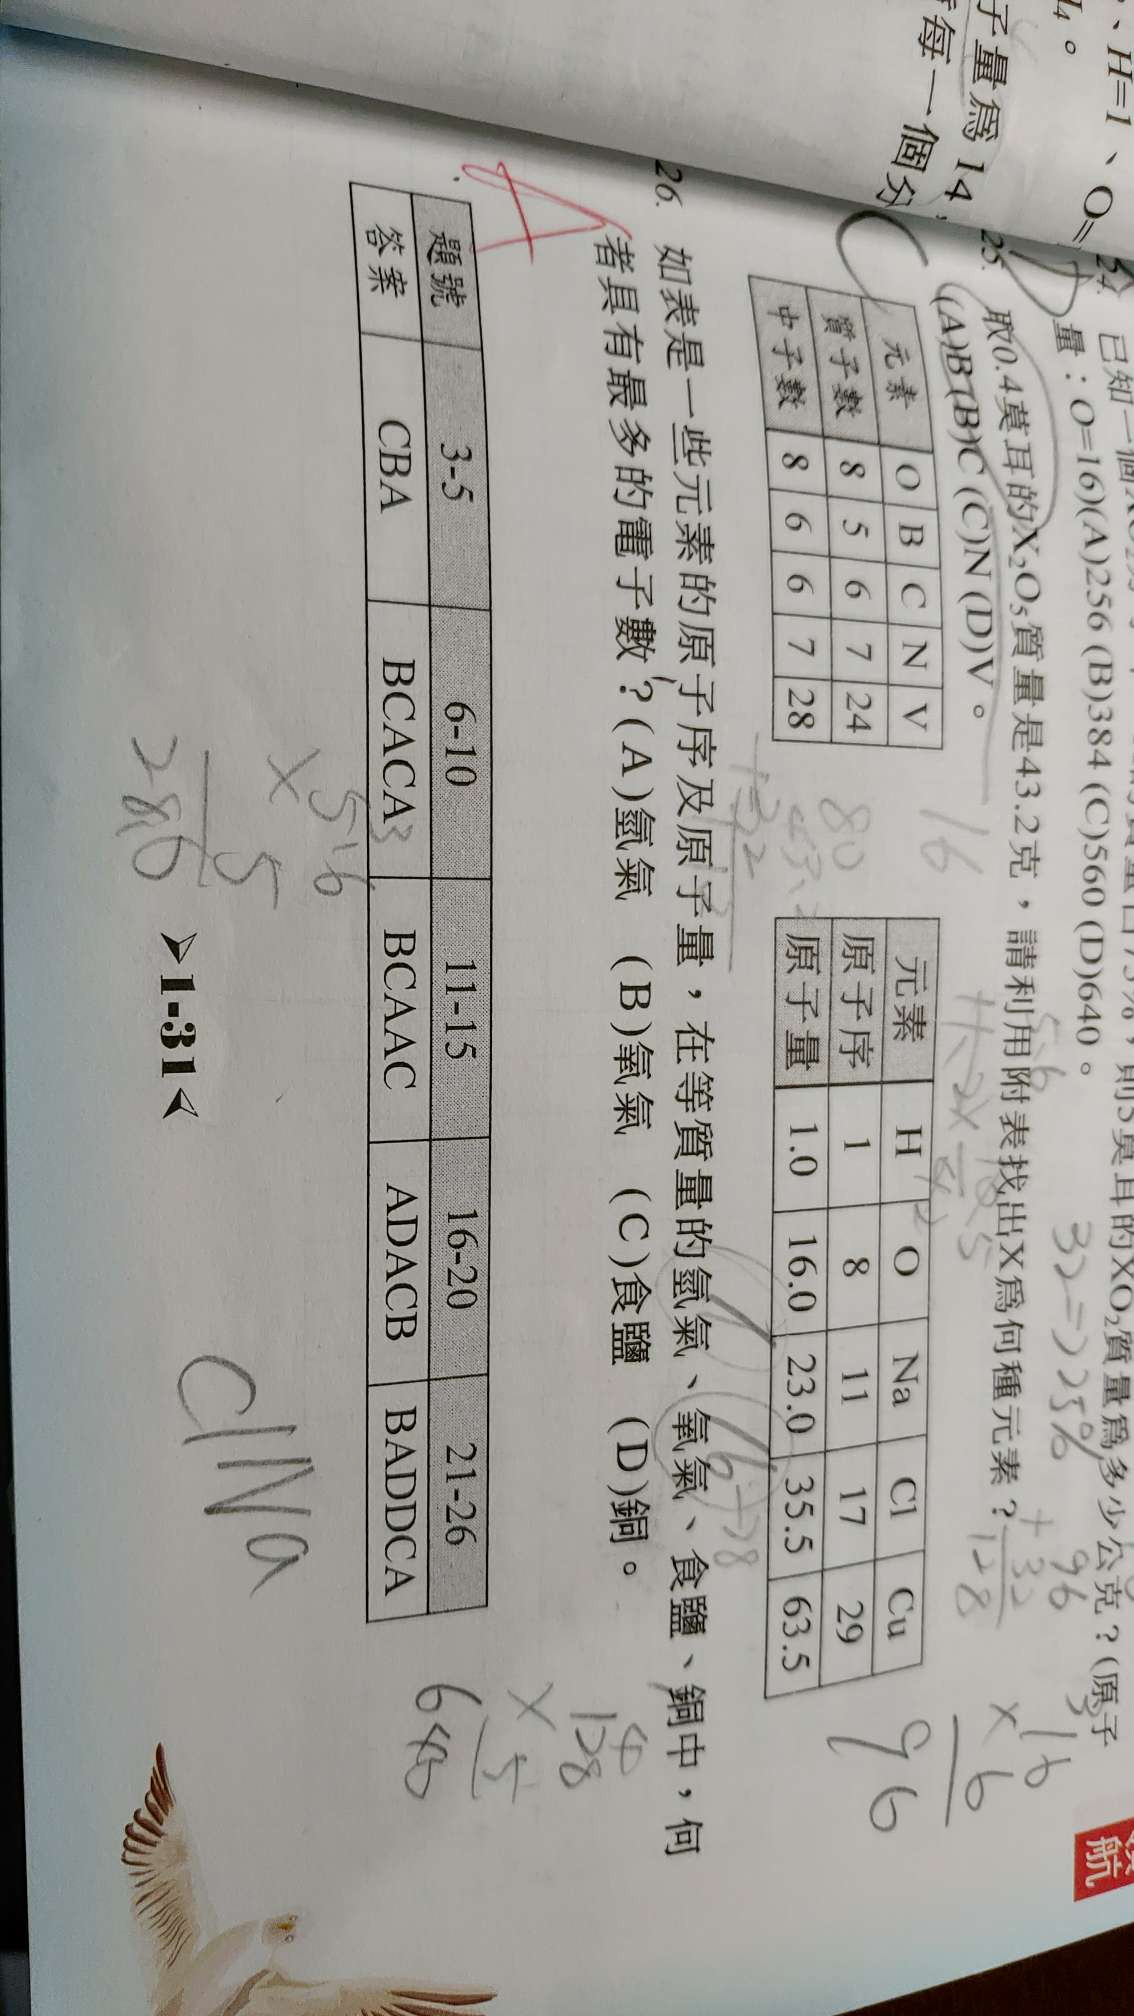 、H=1、O=
子量為 14,
每一個分
量:O=16)(A)256 (B)384 (C)560 (D)640。
25. 取0.4莫耳的X₂O₅質量是43.2克,請利用附表找出X為何種元素?
(A)B (B)C (C)N (D)V。
元素 O B C N V
質子數 8 5 6 7 24
中子數 8 6 6 7 28
元素 H O Na Cl Cu
原子序 1 8 11 17 29
原子量 1.0 16.0 23.0 35.5 63.5
26. 如表是一些元素的原子序及原子量,在等質量的氫氣、氧氣、食鹽、銅中,何
者具有最多的電子數?(A)氫氣 (B)氧氣 (C)食鹽 (D)銅。
A
題號 3-5 6-10 11-15 16-20 21-26
答案 CBA BCACA BCAAC ADACB BADDCA
➢1-31
ClNa
16
×6
96
96
+32
128
128
×5
640
5.6
×5
32=>25%
16
80
航